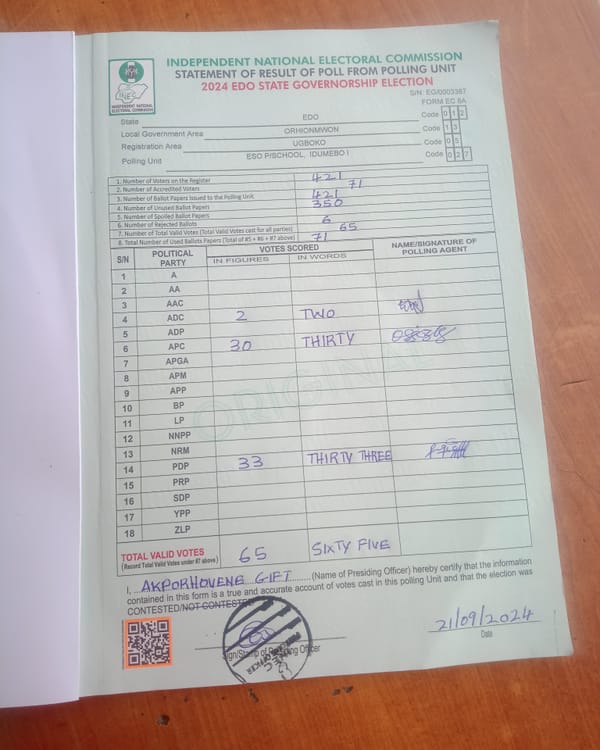 INDEPENDENT NATIONAL ELECTORAL COMMISSION
STATEMENT OF RESULT OF POLL FROM POLLING UNIT
2024 EDO STATE GOVERNORSHIP ELECTION
INEC
INDEPENDENT NATIONAL ELECTORAL COMMISSION
S/N: EG/0003367
FORM EC 8A
State EDO Code 0 1 2
Local Government Area ORHIONMWON Code 1 3
Registration Area UGBOKO Code 0 5
Polling Unit ESO P/SCHOOL, IDUMEBO I Code 0 2 7
1. Number of Voters on the Register 421
2. Number of Accredited Voters 71
3. Number of Ballot Papers Issued to the Polling Unit 421
4. Number of Unused Ballot Papers 350
5. Number of Spoiled Ballot Papers
6. Number of Rejected Ballots 6
7. Number of Total Valid Votes (Total Valid Votes cast for all parties) 65
8. Total Number of Used Ballots Papers (Total of #5 + #6 + #7 above) 71
S/N POLITICAL PARTY VOTES SCORED NAME/SIGNATURE OF POLLING AGENT
IN FIGURES IN WORDS
1 A
2 AA
3 AAC
4 ADC 2 TWO
5 ADP
6 APC 30 THIRTY
7 APGA
8 APM
9 APP
10 BP
11 LP
12 NNPP
13 NRM
14 PDP 33 THIRTY THREE
15 PRP
16 SDP
17 YPP
18 ZLP
ORIGINAL
TOTAL VALID VOTES 65 SIXTY FIVE
(Record Total Valid Votes under #7 above)
I, AKPORHOVENE GIFT (Name of Presiding Officer) hereby certify that the information
contained in this form is a true and accurate account of votes cast in this polling Unit and that the election was
CONTESTED/NOT CONTESTED
21/09/2024
Sign/Stamp of Presiding Officer
Date